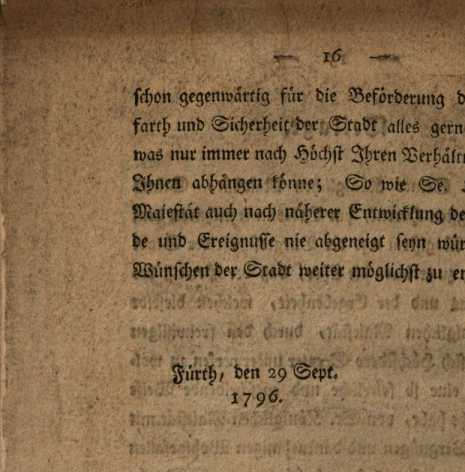 — 16 —
schon gegenwärtig für die Beförderung d
farth und Sicherheit der Stadt alles gern
was nur immer nach Höchst Ihren Verhält
Ihnen abhängen könne; So wie Se.
Majestät auch nach näherer Entwicklung de
de und Ereignusse nie abgeneigt seyn wür
Wünschen der Stadt weiter möglichst zu en
Fürth, den 29 Sept.
1796.